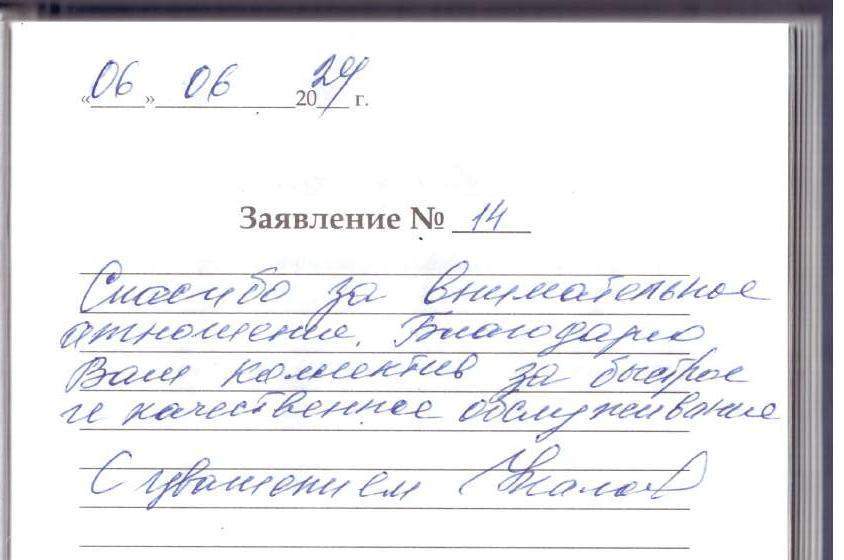 «06» 06 2024 г.
Заявление № 14
Спасибо за внимательное
отношение. Благодарю
Ваш коллектив за быстрое
и качественное обслуживание
С уважением